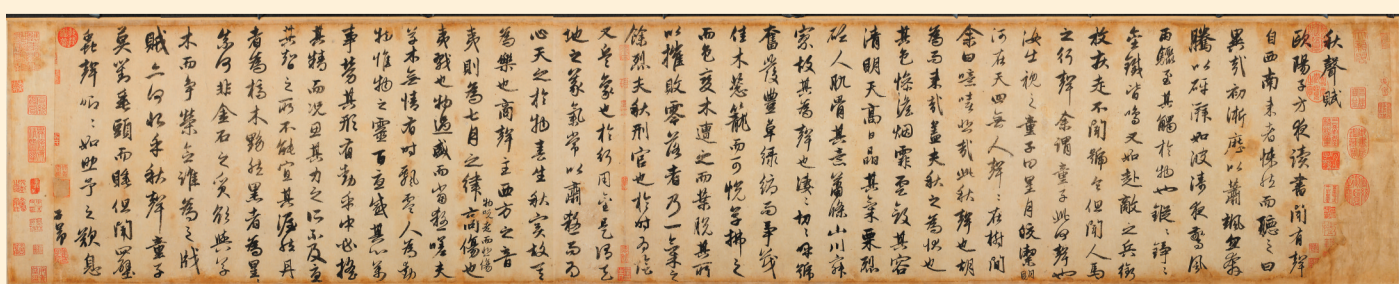 秋聲賦
歐陽子方夜讀書聞有聲
自西南来者悚然而聽之曰
異哉初淅瀝以蕭颯忽奔
騰以砰湃如波濤夜驚風
雨驟至其觸於物也鏦〻錚〻
金鐵皆鳴又如赴敵之兵銜
枚疾走不聞號令但聞人馬
之行聲余謂童子此何聲也
汝出視之童子曰星月皎潔明
河在天四無人聲〻在樹間
余曰噫嘻悲哉此秋聲也胡
為而来哉盖夫秋之為狀也
其色慘淡烟霏雲斂其容
清明天高日晶其氣栗烈
砭人肌骨其意蕭條山川寂
寥故其為聲也淒〻切〻呼號
奮發豐草綠縟而爭茂
佳木葱蘢而可悅草拂之
而色變木遭之而葉脫其所
以摧敗零落者乃一氣之
餘烈夫秋刑官也於時為陰
又兵象也於行用金是謂天
地之義氣常以肅殺而為
心天之於物春生秋實故其
為樂也商聲主西方之音
夷則為七月之律商傷也
物既老而悲傷
夷戮也物過盛而當殺嗟夫
草木無情有時飄零人為動
物惟物之靈百憂感其心萬
事勞其形有動乎中必搖
其精而況思其力之所不及憂
其智之所不能宜其渥然丹
者為槁木黟然黑者為星
奈何非金石之質欲與草
木而爭榮念誰為之戕
賊亦何恨乎秋聲童子
莫對垂頭而睡但聞四壁
蟲聲唧〻如助予之歎息
子昂